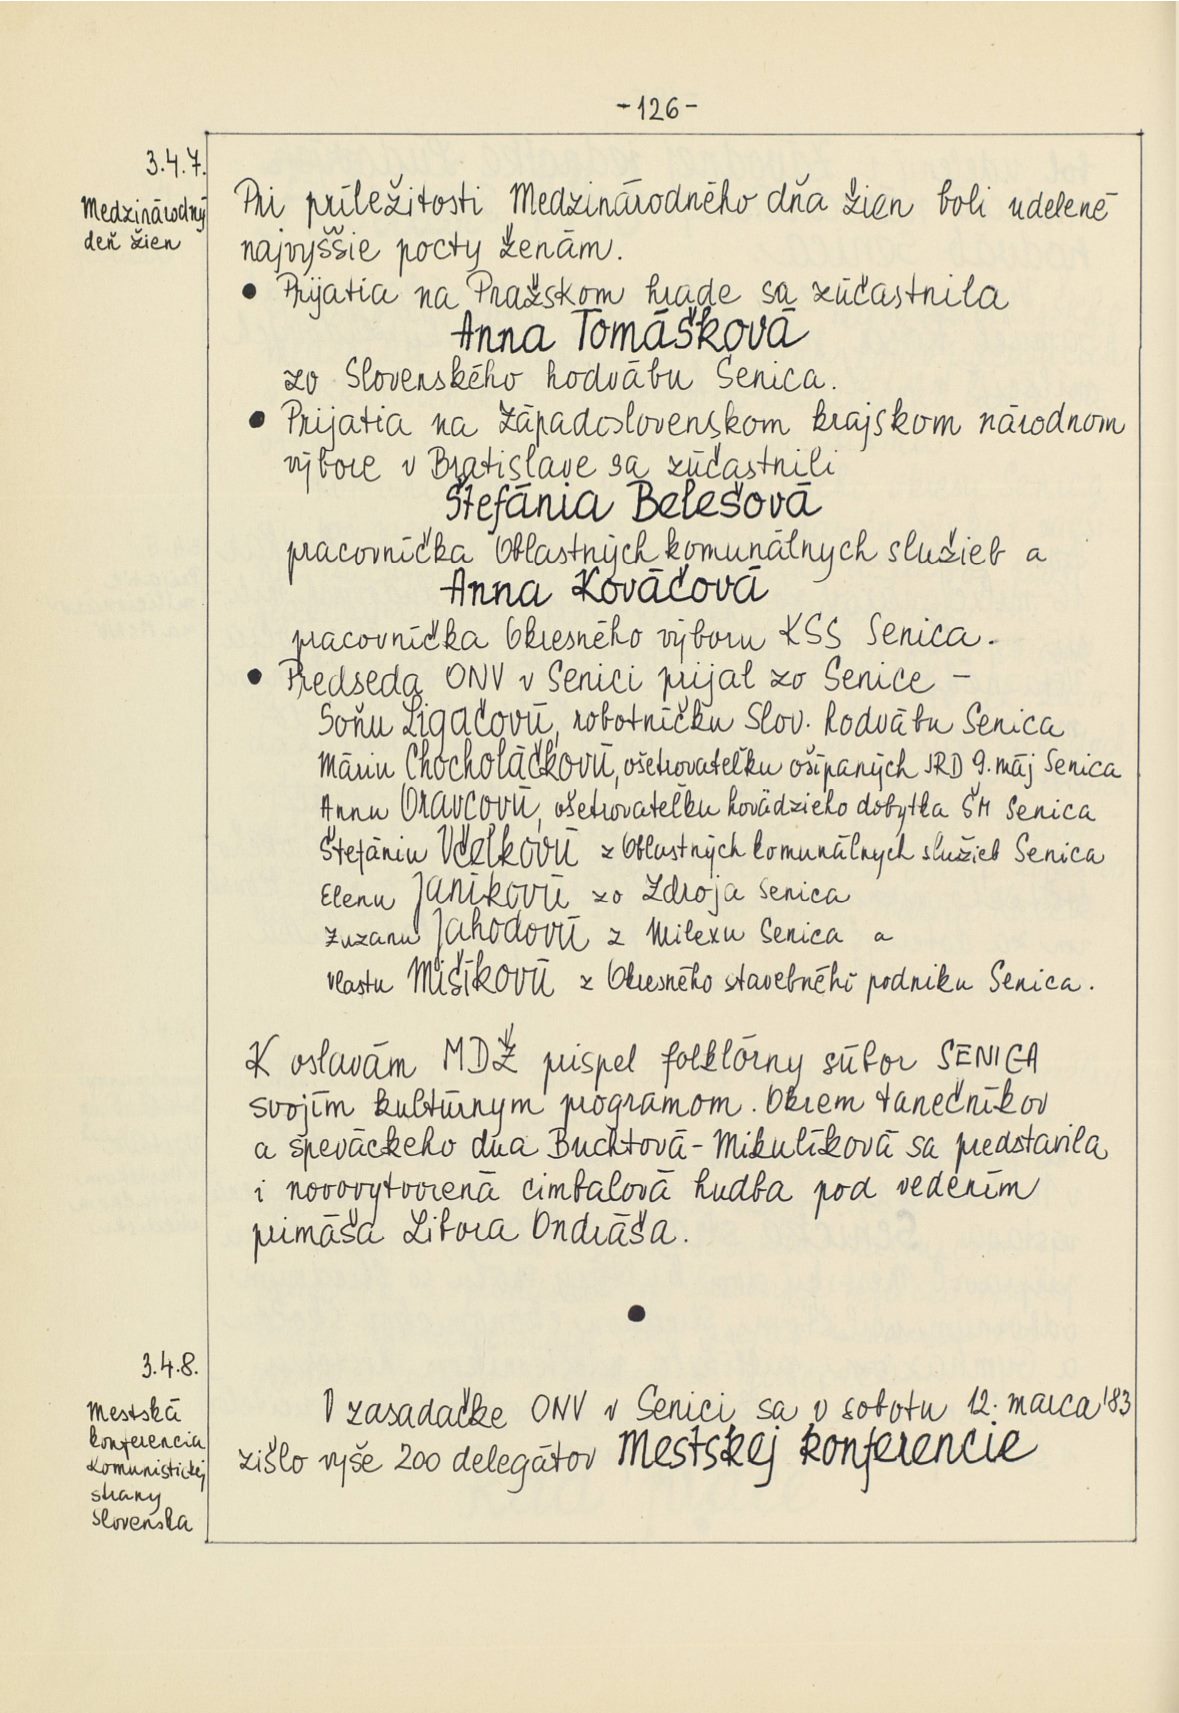 -126-
3.4.7.
Medzinárodný
deň žien
Pri príležitosti Medzinárodného dňa žien boli udelené
najvyššie pocty ženám.
● Prijatia na Pražskom hrade sa zúčastnila
Anna Tomášková
zo Slovenského hodvábu Senica.
● Prijatia na Západoslovenskom krajskom národnom
výbore v Bratislave sa zúčastnili
Štefánia Belešová
pracovníčka Oblastných komunálnych služieb a
Anna Kováčová
pracovníčka Okresného výboru KSS Senica.
● Predseda ONV v Senici prijal zo Senice -
Soňu Ligačovú, robotníčku Slov. hodvábu Senica
Máriu Chocholáčkovú, ošetrovateľku ošípaných JRD 9. máj Senica
Annu Oravcovú, ošetrovateľku hovädzieho dobytka ŠM Senica
Štefániu Včelkovú z Oblastných komunálnych služieb Senica
Elenu Janíkovú zo Zdroja Senica
Zuzanu Jahodovú z Milexu Senica a
Vlastu Mišíkovú z Okresného stavebného podniku Senica.
K oslavám MDŽ prispel folklórny súbor SENICA
svojím kultúrnym programom. Okrem tanečníkov
a speváckeho dua Buchtová-Mikulíková sa predstavila
i novovytvorená cimbalová hudba pod vedením
primáša Libora Ondráša.
●
3.4.8.
Mestská
konferencia
Komunistickej
strany
Slovenska
V zasadačke ONV v Senici sa v sobotu 12. marca '83
zišlo vyše 200 delegátov Mestskej konferencie